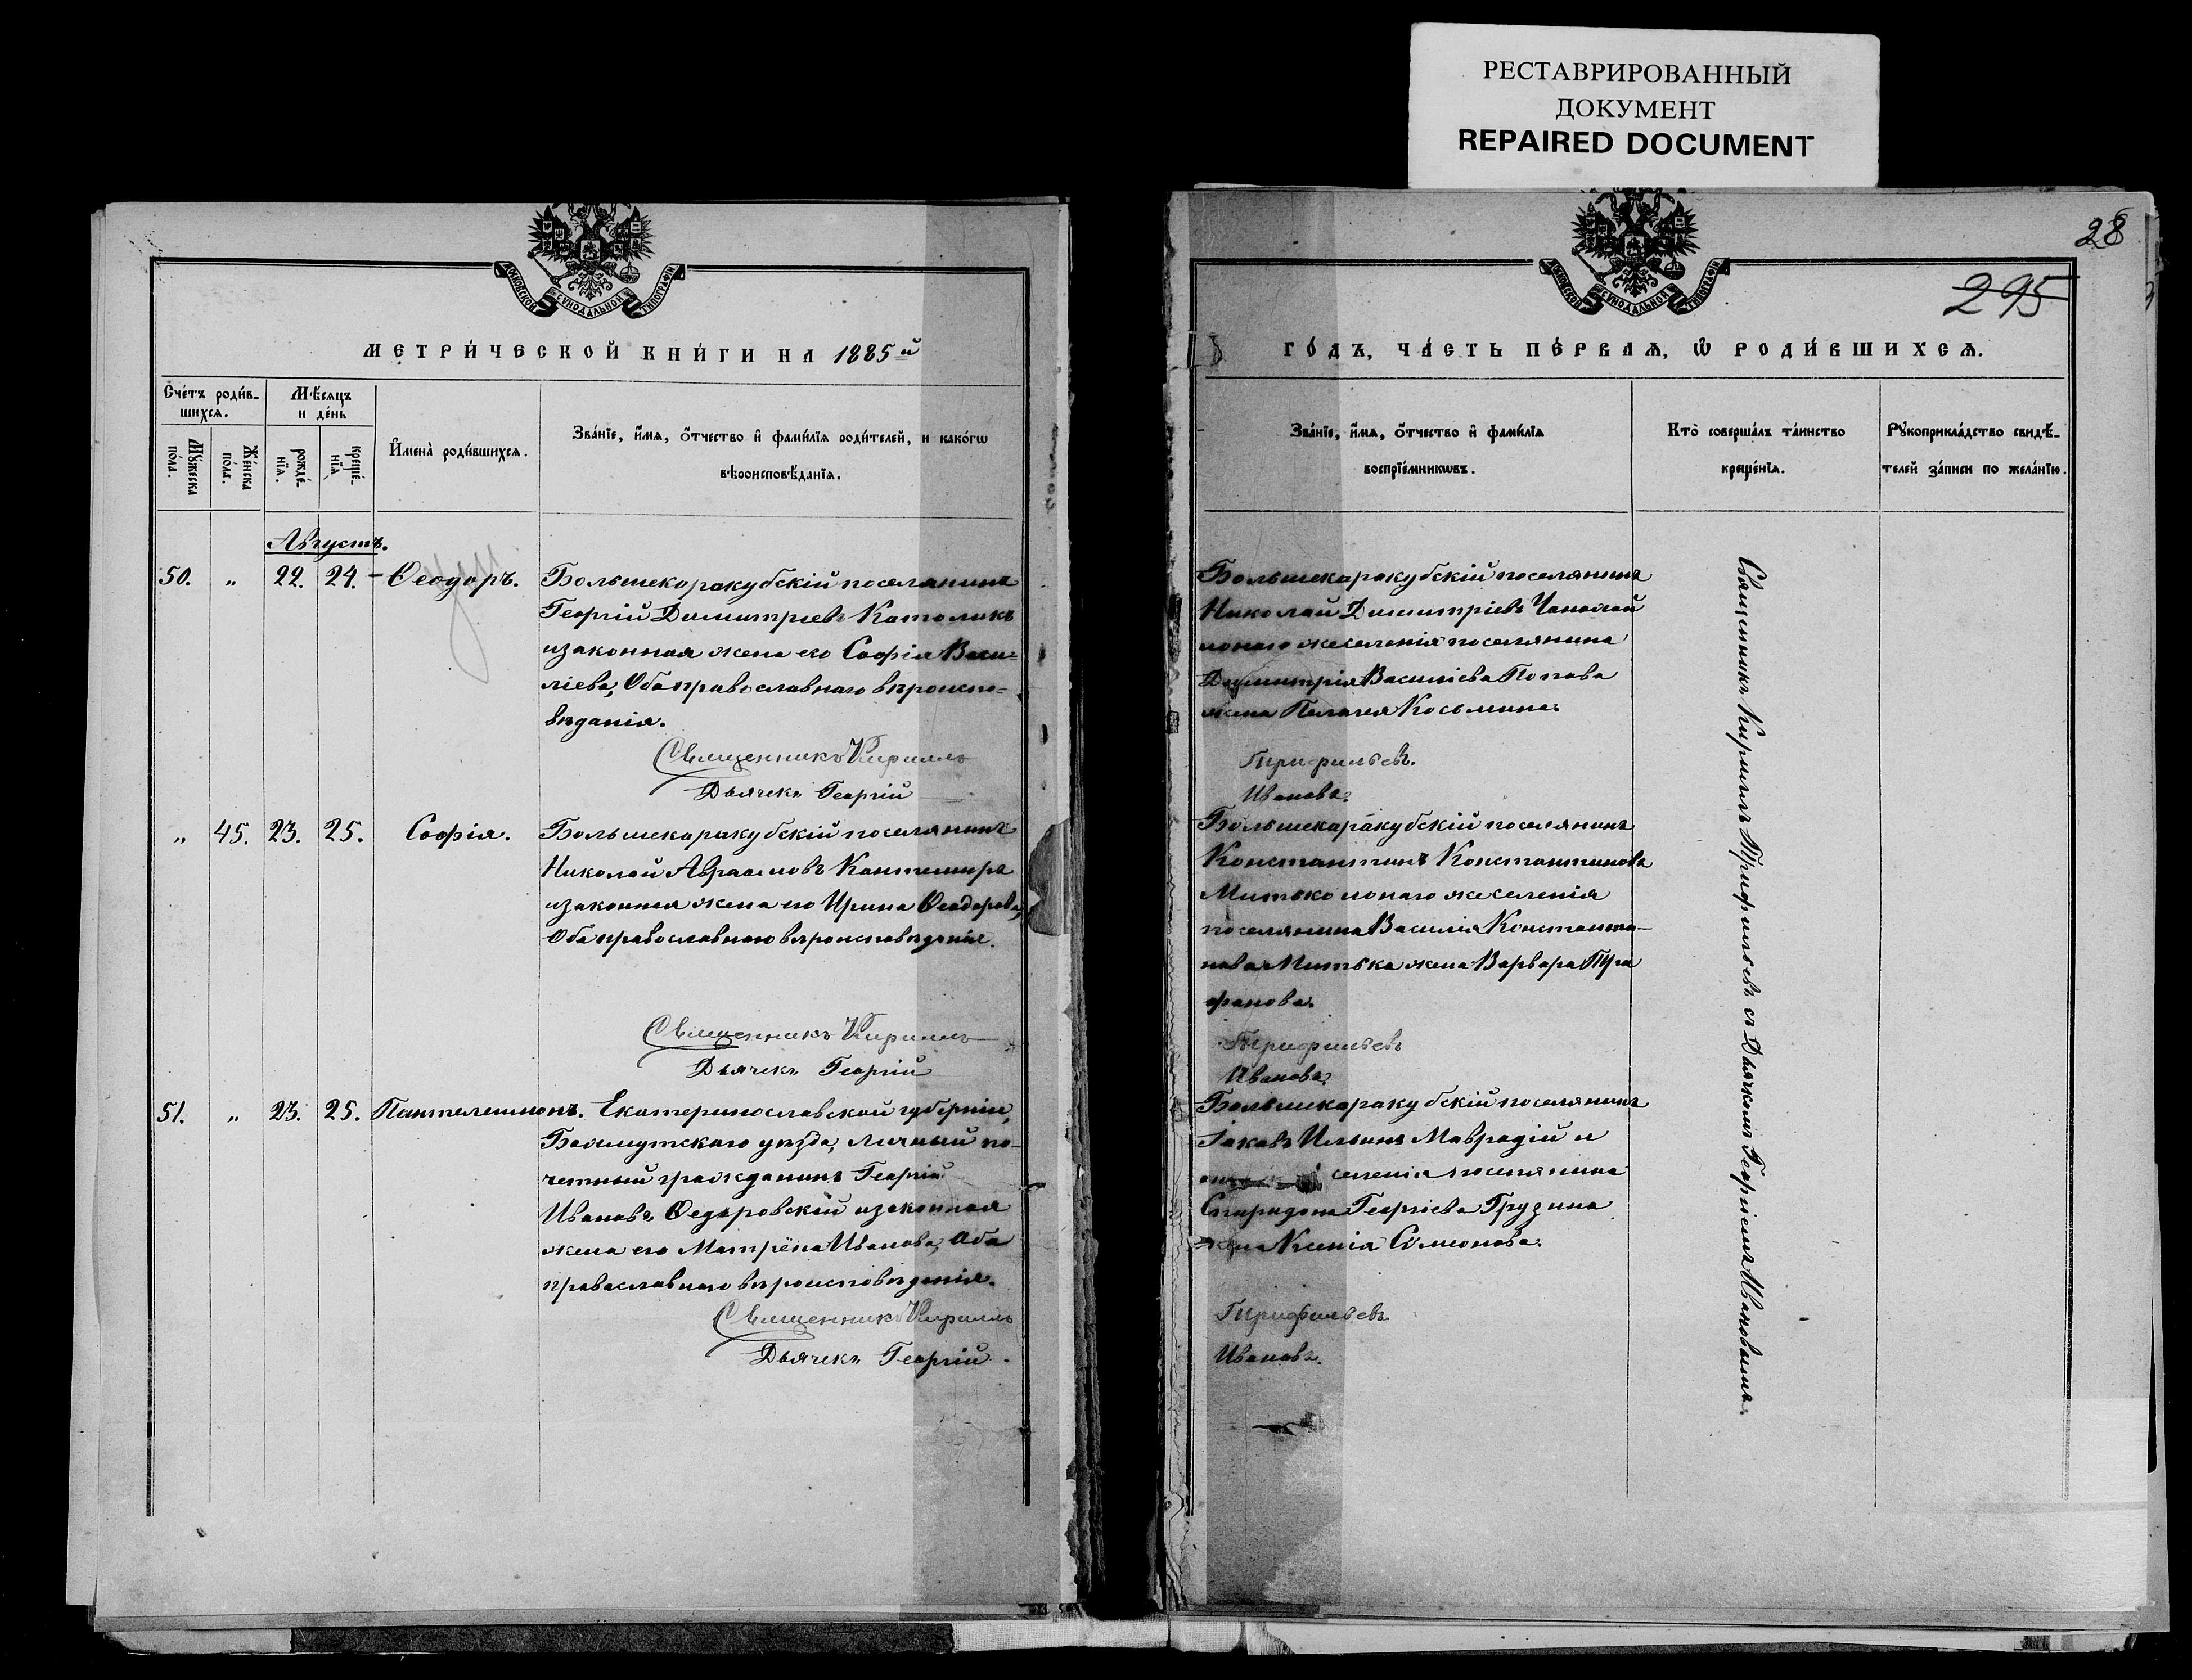 РЕСТАВРИРОВАННЫЙ
ДОКУМЕНТ
REPAIRED DOCUMENT
МОСКОВСКОЙ СУНОДАЛЬНОЙ ТИПОГРАФІИ
МЕТРИ́ЧЕСКОЙ КНИ́ГИ НА 1885й
Сче́тъ роди́в-
шихсѧ.
Мѣ́сѧцъ
и де́нь
Мꙋ́жеска
по́ла.
Же́нска
по́ла.
рожде́-
нїѧ.
креще́-
нїѧ
И҆мена̀ роди́вшихсѧ.
Зва́нїе, и҆́мѧ, ѻ҆́тчество и҆ фами́лїѧ роди́телей, и како́гѡ
вѣроисповѣ́данїѧ.
Августъ.
50. „ 22. 24. – Ѳеодоръ. Большекаракубскій поселянинъ
Георгій Димитріевъ Католикъ
и законная жена его Софія Васи-
ліева, Оба православнаго вѣроиспо-
вѣданія.
Священникъ Кириллъ
Дьячекъ Георгій
„ 45. 23. 25. Софія. Большекаракубскій поселянинъ
Николай Авраамовъ Кантемиръ
и законная жена его Ирина Ѳеодорова,
Оба православнаго вѣроисповѣданія.
Священникъ Кириллъ
Дьячекъ Георгій
51. „ 23. 25. Пантелеимонъ. Екатеринославской губерніи,
Бахмутскаго уѣзда, личный по-
четный гражданинъ Георгій
Ивановъ Ѳедоровскій и законная
жена его Матрёна Иванова, Оба
православнаго вѣроисповѣданія.
Священникъ Кириллъ
Дьячекъ Георгій.
28
295
МОСКОВСКОЙ СУНОДАЛЬНОЙ ТИПОГРАФІИ
ГО́ДЪ, ЧА́СТЬ ПЕ́РВАѦ, Ѡ҆ РОДИ́ВШИХСѦ.
Зва́нїе, и҆́мѧ, ѻ҆́тчество и҆ фами́лїѧ
воспрїе́мникѡвъ.
Кто̀ соверша́лъ та́инство
креще́нїѧ.
Рꙋкоприкла́дство свидѣ́-
телей за́писи по жела́нїю.
Большекаракубскій поселянинъ
Николай Димитріевъ
и онаго же селенія поселянина
Димитрія Василіева Попова
жена Пелагея Косьмина.
Трифильевъ.
Ивановъ.
Большекаракубскій поселянинъ
Константинъ Константиновъ
Митько и онаго же селенія
поселянина Василія Константи-
нова Митька жена Варвара
фанова.
Трифильевъ
Ивановъ.
Большекаракубскій поселянинъ
Іаковъ Ильинъ Мавродій и
селенія поселянина
Спиридона Георгіева Грузина
жена Ксенія Симеонова.
Трифильевъ.
Ивановъ.
Священникъ Кириллъ Трифильевъ съ Дьячкомъ Георгіемъ Ивановымъ.